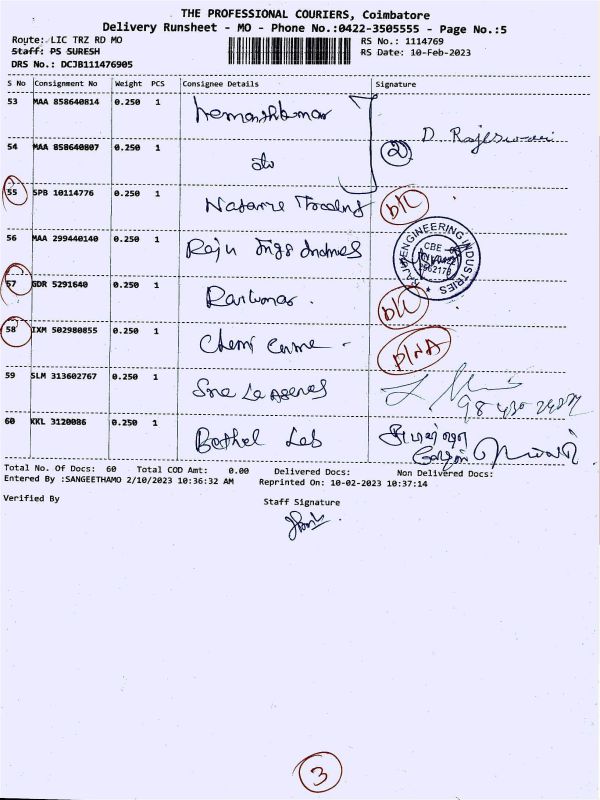 THE PROFESSIONAL COURIERS, Coimbatore
Delivery Runsheet - MO - Phone No.:0422-3505555 - Page No.:5
Route: LIC TRZ RD MO
RS No.: 1114769
Staff: PS SURESH
RS Date: 10-Feb-2023
DRS No.: DCJB111476905
S No Consignment No Weight PCS Consignee Details Signature
53 MAA 858640814 0.250 1
D. Rajeswari
54 MAA 858640807 0.250 1 do 2
55 SPB 10114776 0.250 1 D/L
56 MAA 299440140 0.250 1 Raju Engg Industries
RAJU ENGINEERING INDUSTRIES CBE
57 GDR 5291640 0.250 1 D/L
58 IXM 502980855 0.250 1 Chemi P/NA
59 SLM 313602767 0.250 1 Sree
60 KKL 3120086 0.250 1 Bethel Lab
Total No. Of Docs: 60 Total COD Amt: 0.00 Delivered Docs: Non Delivered Docs:
Entered By :SANGEETHAMO 2/10/2023 10:36:32 AM Reprinted On: 10-02-2023 10:37:14
Verified By Staff Signature
3